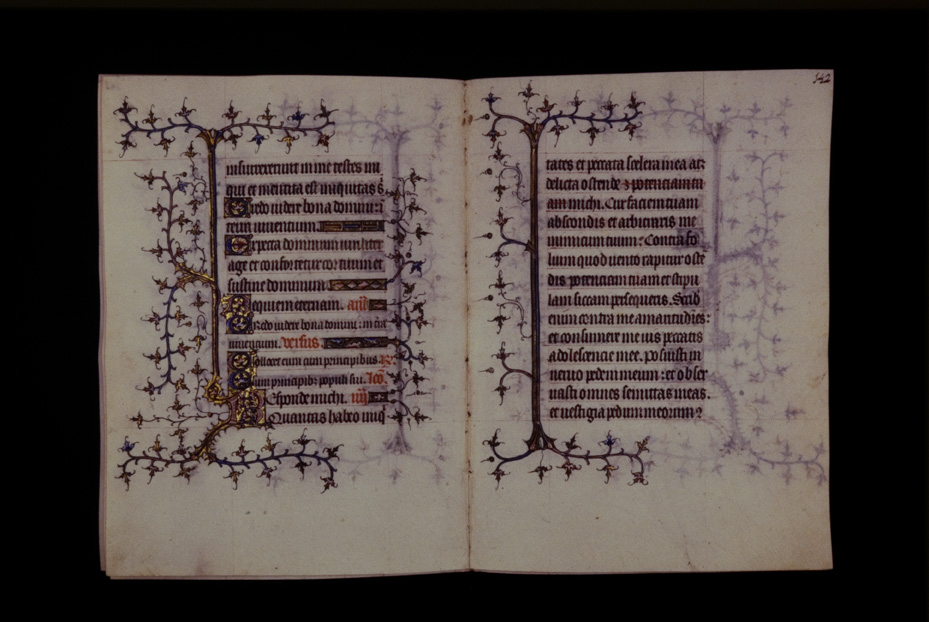 insurrexerunt in me testes ini
qui et mentita est iniquitas s.
Credo videre bona domini: i
terra viventium.
Expecta dominum viriliter
age et confortetur cor tuum et
sustine dominum.
Requiem eternam. añ
Credo videre bona domini: in t͛ra
viventium. versus
Collocet eum cum principibus R.
Cum principib; populi sui. lc̃o.
Responde michi. iiij
Quantas habeo iniq̃
142
tates et peccata scelera mea atq;
delicta ostende
am michi. Cur faciem tuam
abscondis et arbitraris me
inimicum tuum? Contra fo
lium quod vento rapitur oste
dis potenciam tuam et stipu
lam siccam persequeris. Scrib
enim contra me amaritudies:
et consumere me vis peccatis
adolescencie mee. posuisti in
nervo pedem meum: et obser
vasti omnes semittas meas.
et vestigia pedum meorum